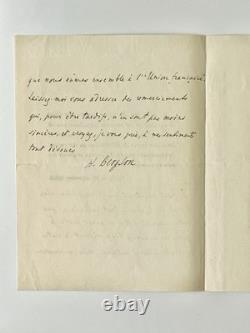 que nous eûmes ensemble à l'Union française,
Laissez-moi vous adresser des remerciements
qui, pour être tardifs, n'en sont pas moins
sincères, et croyez, je vous prie, à mes sentiments
tout dévoués
H. Bergson